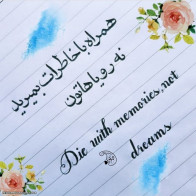 همراه با خاطرات بمیرید
نه رویاهاتون
Die with memories, not
dreams